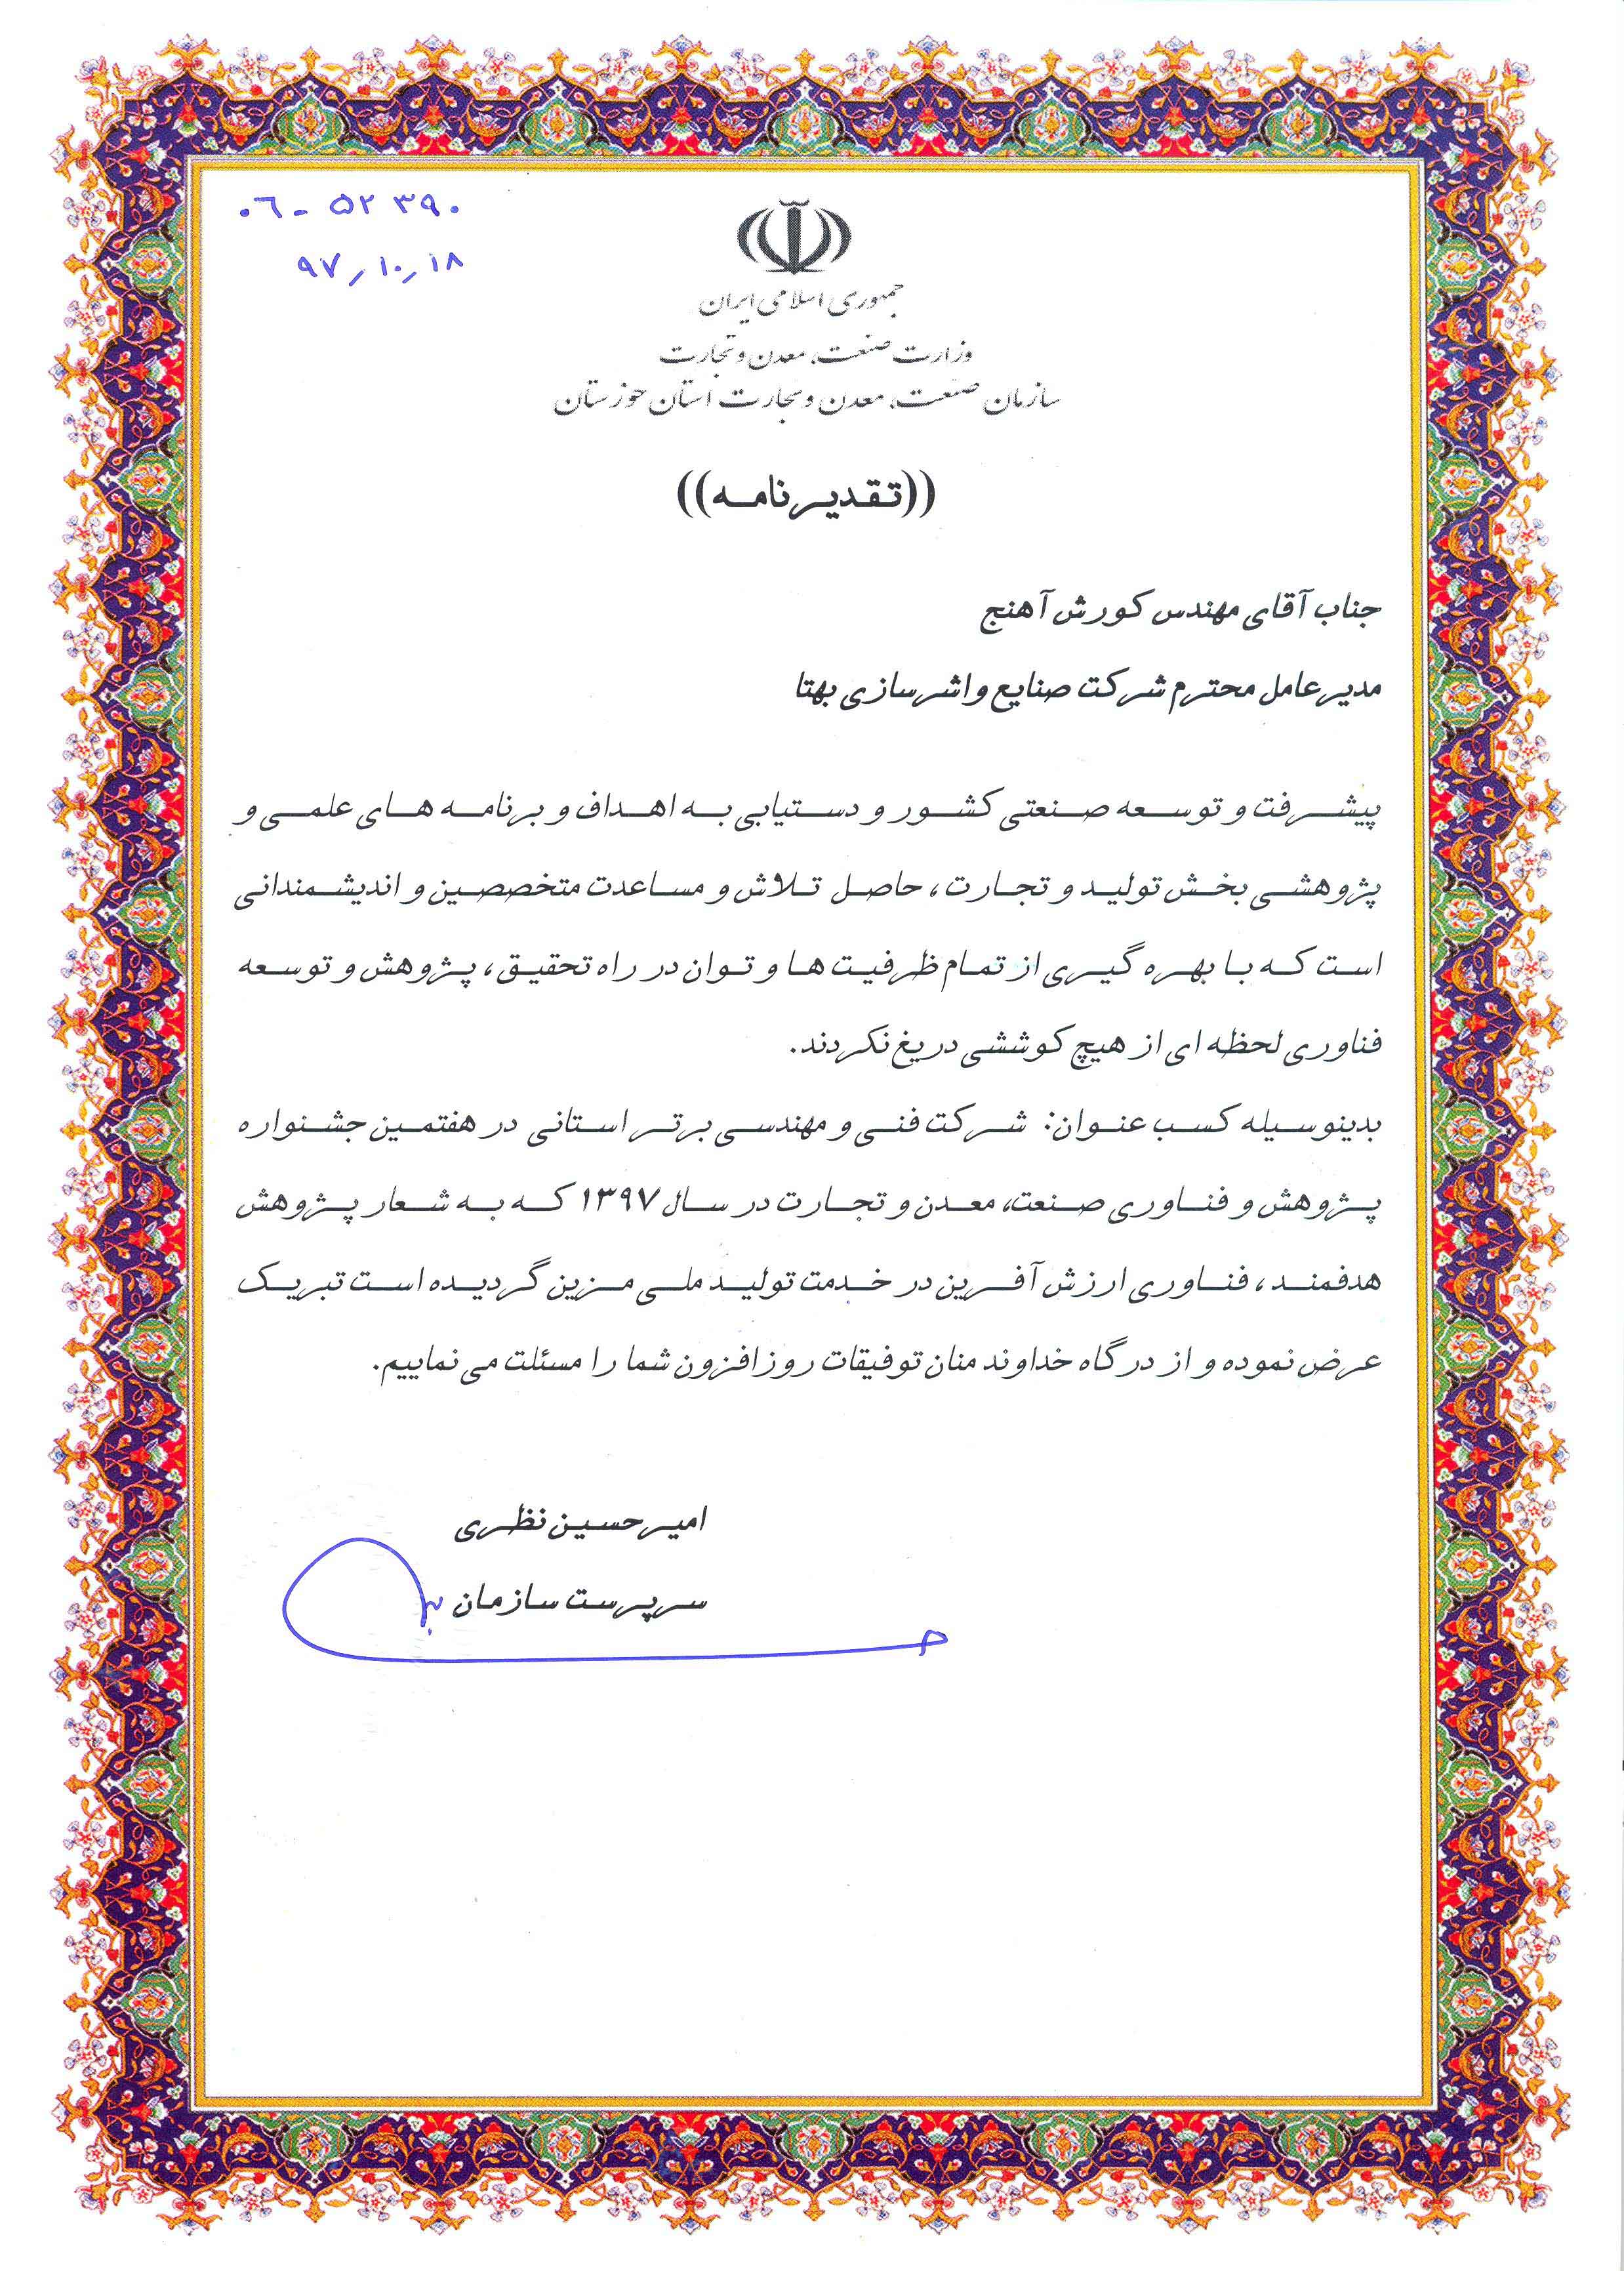 ۰۶-۵۲۳۹۰
۹۷/۱۰/۱۸
جمهوری اسلامی ایران
وزارت صنعت، معدن و تجارت
سازمان صنعت، معدن و تجارت استان خوزستان
((تقدیرنامه))
جناب آقای مهندس کورش آهنج
مدیرعامل محترم شرکت صنایع واشرسازی بهتا
پیشرفت و توسعه صنعتی کشور و دستیابی به اهداف و برنامه های علمی و
پژوهشی بخش تولید و تجارت، حاصل تلاش و مساعدت متخصصین و اندیشمندانی
است که با بهره گیری از تمام ظرفیت ها و توان در راه تحقیق، پژوهش و توسعه
فناوری لحظه ای از هیچ کوششی دریغ نکردند.
بدینوسیله کسب عنوان: شرکت فنی و مهندسی برتر استانی در هفتمین جشنواره
پژوهش و فناوری صنعت، معدن و تجارت در سال ۱۳۹۷ که به شعار پژوهش
هدفمند، فناوری ارزش آفرین در خدمت تولید ملی مزین گردیده است تبریک
عرض نموده و از درگاه خداوند منان توفیقات روزافزون شما را مسئلت می نماییم.
امیرحسین نظری
سرپرست سازمان